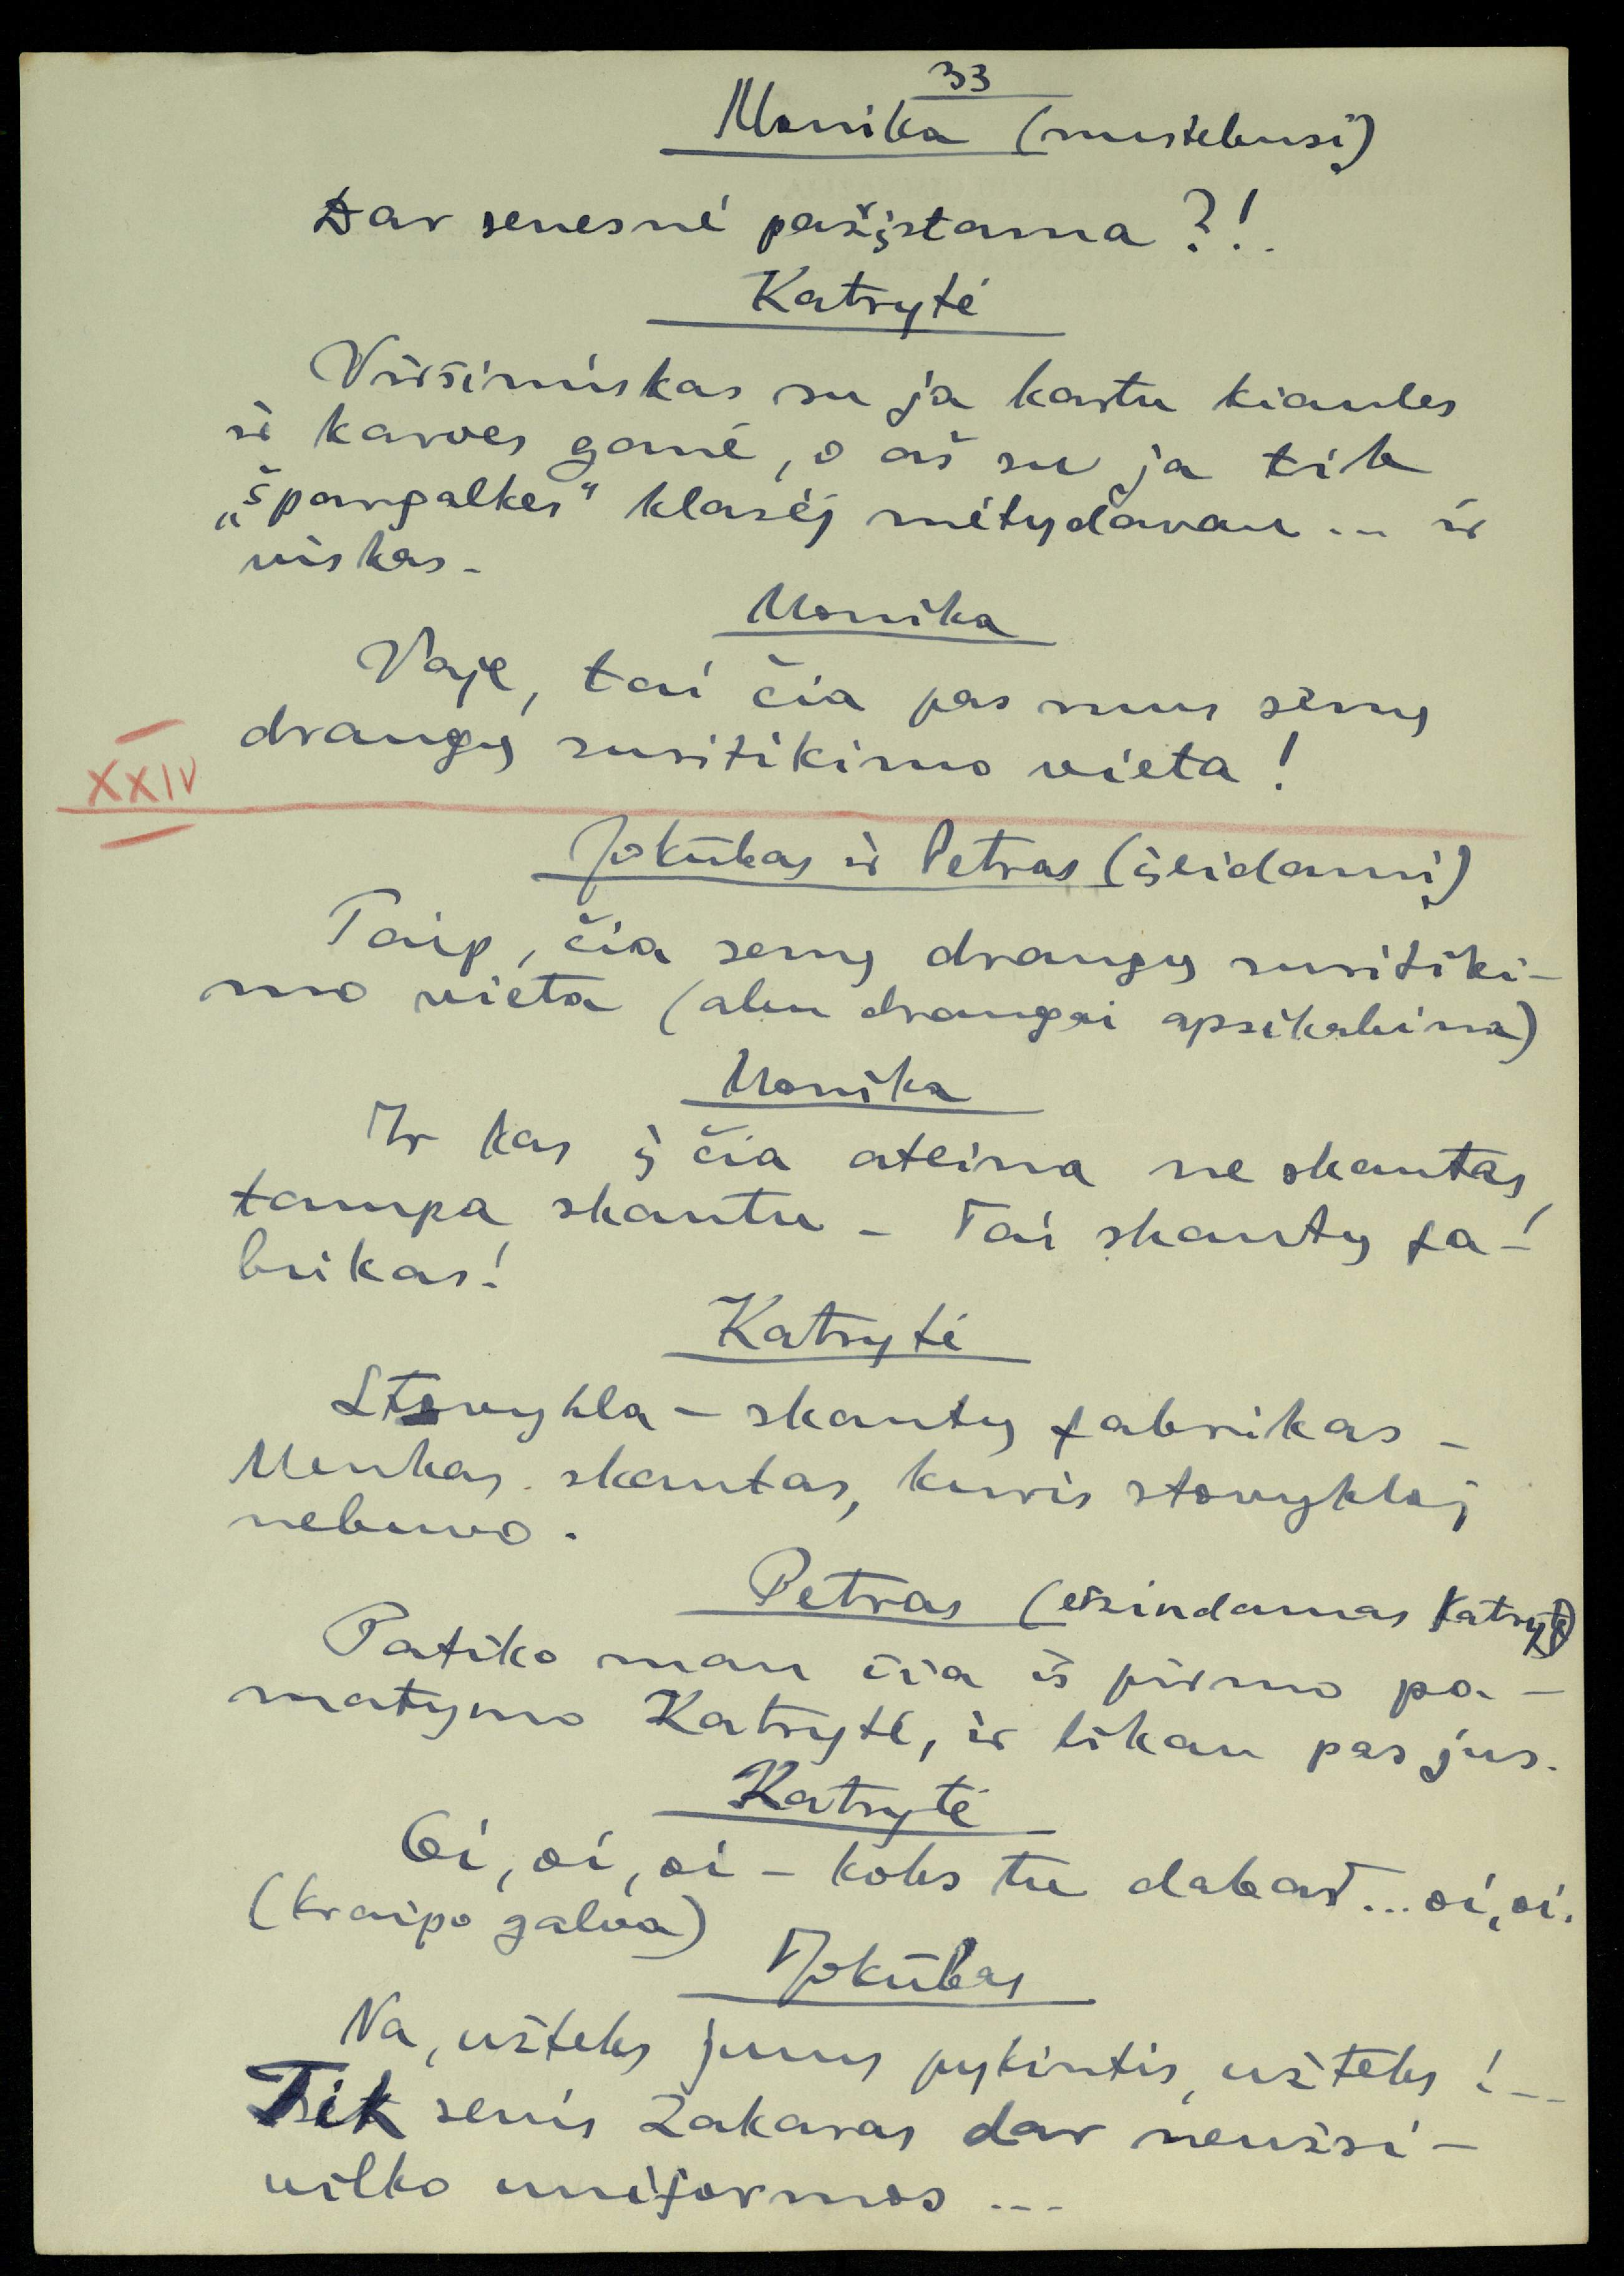 33
Monika (nustebusi)
Dar senesnė pažįstama?!
Katrytė
Viršininkas su ja kartu kiaules
ir karves ganė, o aš su ja tik
„špargalkes" klasėj mėtydavau... ir
viskas.
Monika
Vaje, tai čia pas mus senų
draugų susitikimo vieta!
XXIV
Jokūbas ir Petras (įeidami)
Taip, čia senų draugų susitiki-
mo vieta (abu draugai apsikabina)
Monika
Ir kas į čia ateina ne skautas,
tampa skautu - Tai skautų fa-
brikas!
Katrytė
Stovykla - skautų fabrikas -
Menkas skautas, kuris stovykloj
nebuvo.
Petras (erzindamas Katrytę)
Patiko man čia iš pirmo pa-
matymo Katrytė, ir likau pas jus.
Katrytė
Oi, oi, oi - koks tu dabar... oi, oi.
(kraipo galvą)
Jokūbas
Na, užteks jums pykintis, užteks!...
Tik senis Zakaras dar neužsi-
vilko uniformos...